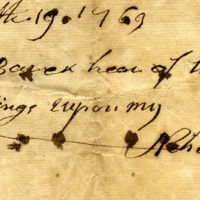 th. 19. 1769
Barek hear of t
ings upon my